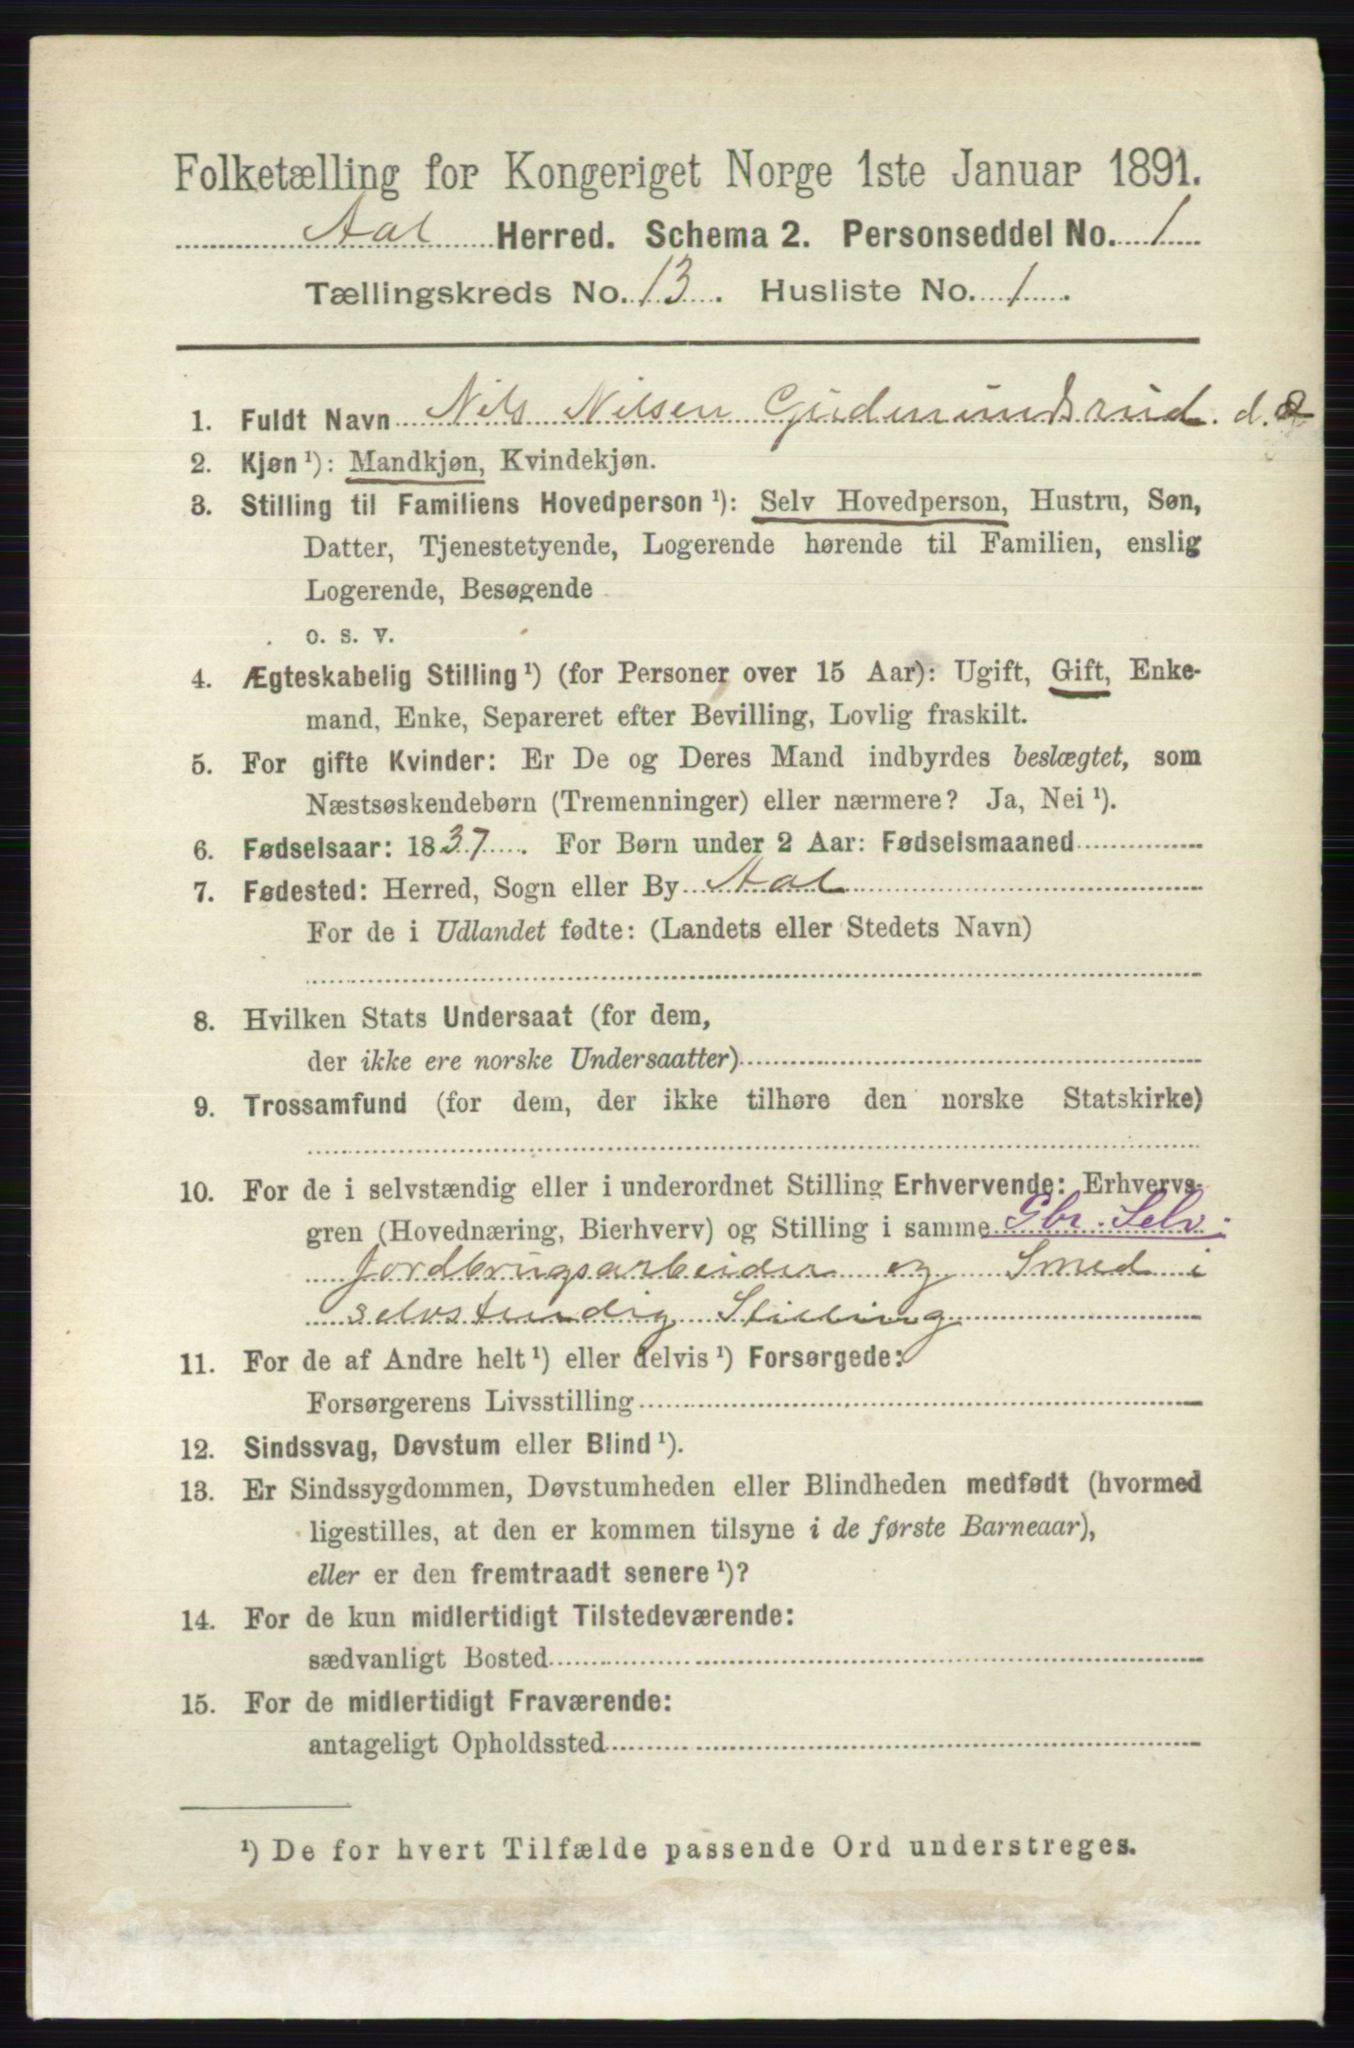 Folketælling for Kongeriget Norge 1ste Januar 1891.
Aal Herred. Schema 2. Personseddel No. 1
Tællingskreds No. 13. Husliste No. 1.
1. Fuldt Navn Nils Nilsen Gudmundsrud. d.
2. Kjøn ¹): Mandkjøn, Kvindekjøn.
3. Stilling til Familiens Hovedperson ¹): Selv Hovedperson, Hustru, Søn,
Datter, Tjenestetyende, Logerende hørende til Familien, enslig
Logerende, Besøgende
o. s. v.
4. Ægteskabelig Stilling ¹) (for Personer over 15 Aar): Ugift, Gift, Enke-
mand, Enke, Separeret efter Bevilling, Lovlig fraskilt.
5. For gifte Kvinder: Er De og Deres Mand indbyrdes beslægtet, som
Næstsøskendebørn (Tremenninger) eller nærmere? Ja, Nei ¹).
6. Fødselsaar: 1837. For Børn under 2 Aar: Fødselsmaaned
7. Fødested: Herred, Sogn eller By Aal
For de i Udlandet fødte: (Landets eller Stedets Navn)
8. Hvilken Stats Undersaat (for dem,
der ikke ere norske Undersaatter)
9. Trossamfund (for dem, der ikke tilhøre den norske Statskirke)
10. For de i selvstændig eller i underordnet Stilling Erhvervende: Erhvervs-
gren (Hovednæring, Bierhverv) og Stilling i samme Gbr. Selv.
Jordbrugsarbeider og Smed i
selvstendig Stilling
11. For de af Andre helt ¹) eller delvis ¹) Forsørgede:
Forsørgerens Livsstilling
12. Sindssvag, Døvstum eller Blind ¹).
13. Er Sindssygdommen, Døvstumheden eller Blindheden medfødt (hvormed
ligestilles, at den er kommen tilsyne i de første Barneaar),
eller er den fremtraadt senere ¹)?
14. For de kun midlertidigt Tilstedeværende:
sædvanligt Bosted
15. For de midlertidigt Fraværende:
antageligt Opholdssted
¹) De for hvert Tilfælde passende Ord understreges.